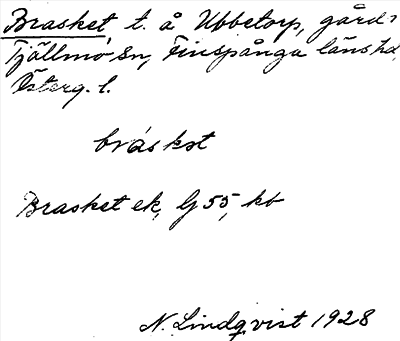 Brasket t. å Ubbetorp, gård,
Tjällmo sn, Finspånga läns hd,
Österg. l.
bráskət
Brasket ek, G 55, kb
N. Lindqvist 1928